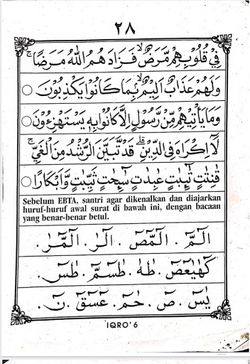 ٢٨
فِيْ قُلُوْبِهِمْ مَّرَضٌ ۙ فَزَادَهُمُ اللّٰهُ مَرَضًا ۚ
وَلَهُمْ عَذَابٌ اَلِيْمٌ ۢ بِمَا كَانُوْا يَكْذِبُوْنَ ○
وَمَا يَأْتِيْهِمْ مِّنْ رَّسُوْلٍ اِلَّا كَانُوْا بِهٖ يَسْتَهْزِءُوْنَ ○
لَآ اِكْرَاهَ فِى الدِّيْنِ ۗ قَدْ تَّبَيَّنَ الرُّشْدُ مِنَ الْغَيِّ ۚ
قٰنِتٰتٍ تٰۤىِٕبٰتٍ عٰبِدٰتٍ سٰۤىِٕحٰتٍ ثَيِّبٰتٍ وَّاَبْكَارًا ○
Sebelum EBTA, santri agar dikenalkan dan diajarkan
huruf-huruf awal surat di bawah ini, dengan bacaan
yang benar-benar betul.
الٓمّٓ . الٓمّٓصٓ . الٓرٰ . الٓمّٓرٰ .
كٓهٰيٰعٓصٓ . طٰهٰ . طٰسٓمّٓ . طٰسٓ .
يٰسٓ . صٓ . حٰمٓ . عٓسٓقٓ . نٓ .
IQRO' 6